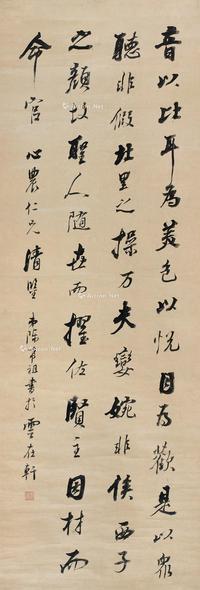 音以比耳為美色以悅目為歡是以眾
聽非假北里之操万夫孌婉非俟西子
之顏故聖人隨世而擢佐賢主因材而
命官 心農仁兄清鑒 弟陳希祖書於雲在軒